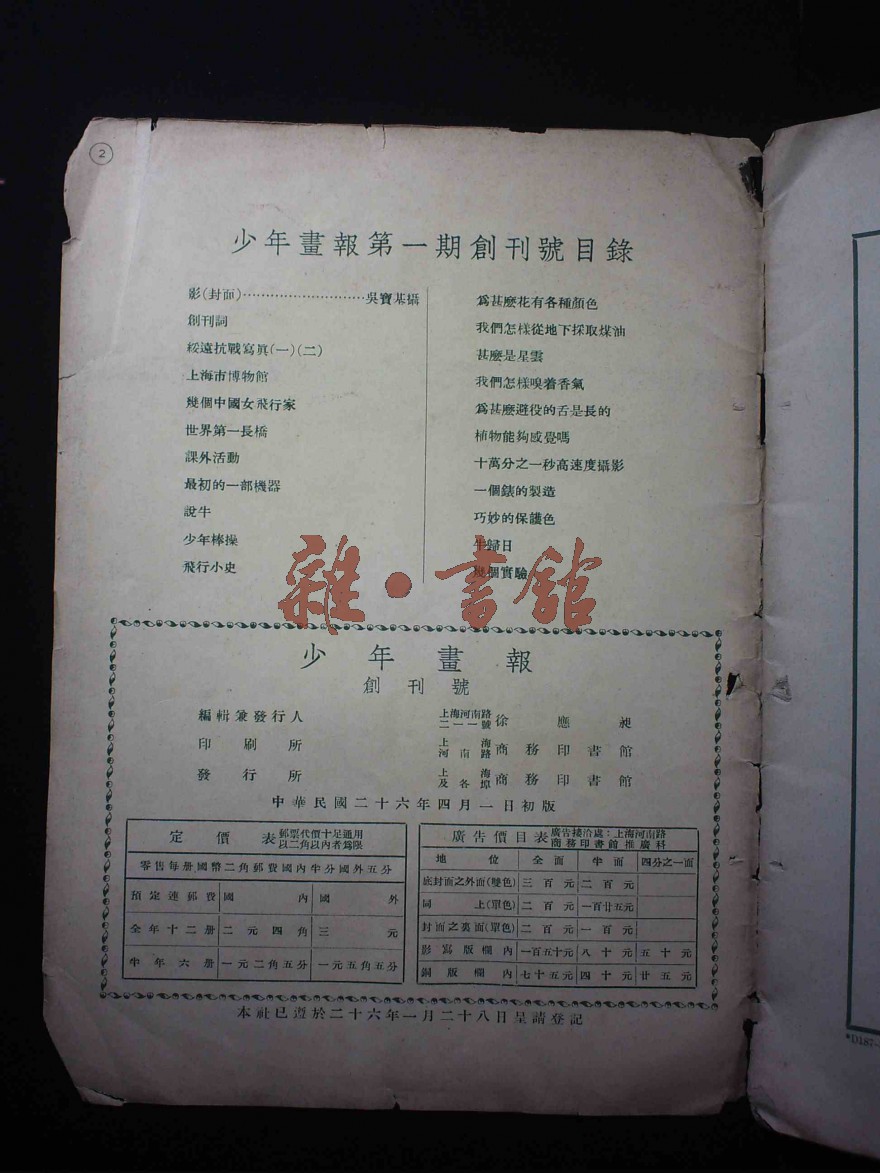 2
少年畫報第一期創刊號目錄
影(封面)………………………吳寶基攝
創刊詞
綏遠抗戰寫眞(一)(二)
上海市博物館
幾個中國女飛行家
世界第一長橋
課外活動
最初的一部機器
說牛
少年棒操
飛行小史
爲甚麼花有各種顏色
我們怎樣從地下採取煤油
甚麼是星雲
我們怎樣嗅着香氣
爲甚麼避役的舌是長的
植物能夠感覺嗎
十萬分之一秒高速度攝影
一個錶的製造
巧妙的保護色
生歸日
幾個實驗
雜·書館
少年畫報
創刊號
編輯兼發行人 上海河南路二一一號 徐應昶
印刷所 上海河南路 商務印書館
發行所 上海及各埠 商務印書館
中華民國二十六年四月一日初版
定價表 郵票代價十足通用以二角以內者爲限
零售每册國幣二角郵費國內半分國外五分
預定連郵費 國內 國外
全年十二册 二元四角 三元
半年六册 一元二角五分 一元五角五分
廣告價目表 廣告接洽處:上海河南路商務印書館推廣科
地位 全面 半面 四分之一面
底封面之外面(雙色) 三百元 二百元
同上(單色) 二百元 一百廿五元
封面之裏面(單色) 二百元 一百元
影寫版欄內 一百五十元 八十元 五十元
銅版欄內 七十五元 四十元 廿五元
本社已遵於二十六年一月二十八日呈請登記
*D187-